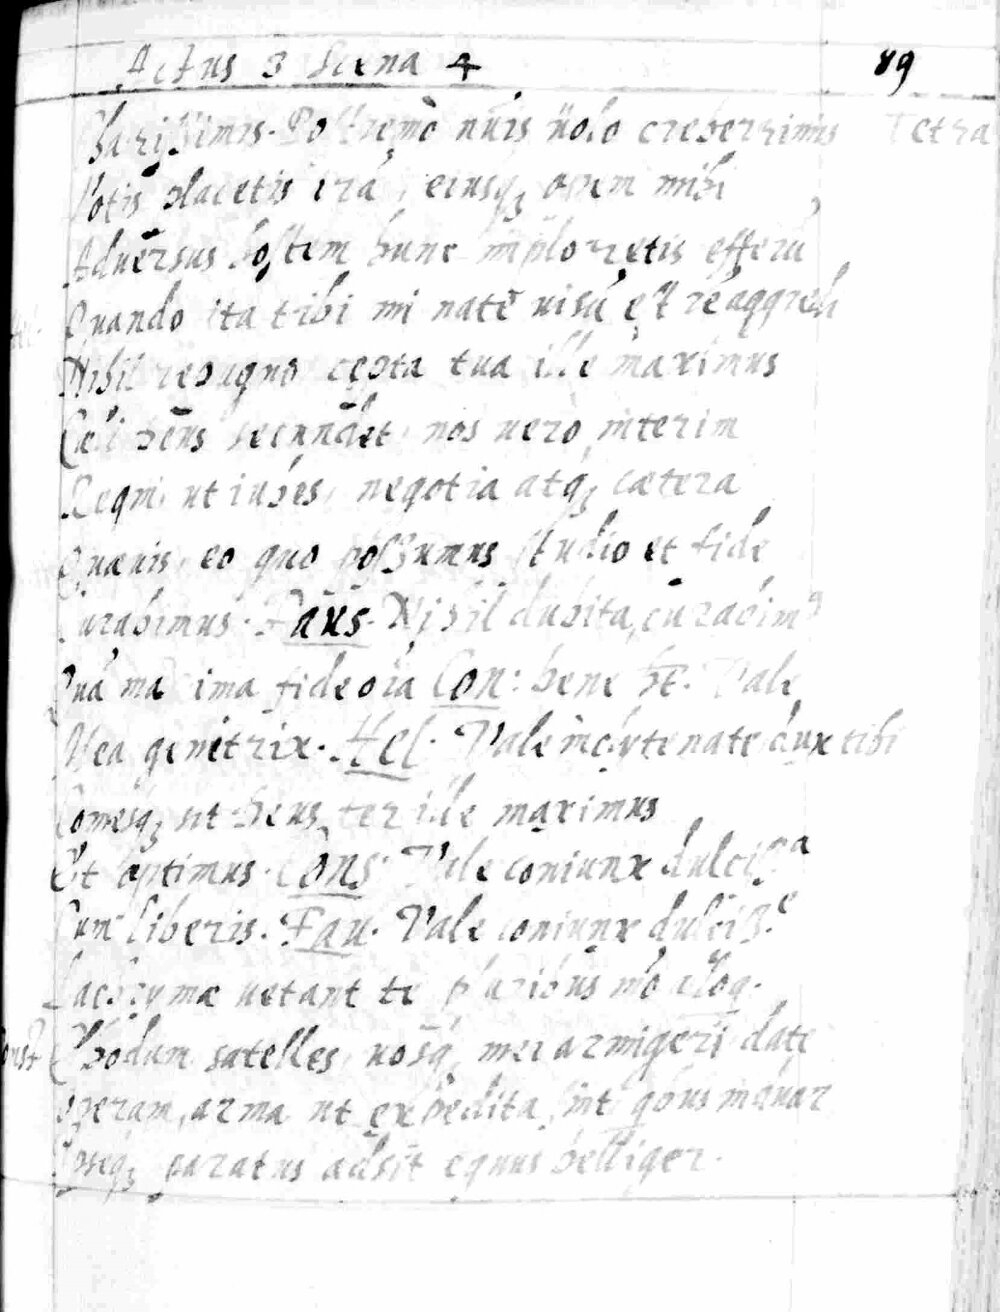 Actus 3 Scena 4 89
Charissimis. Postremò nũis uolo creberrimis Tetra
Votis placetis irã, eiusqȝ opem mihi
Aduersus hostem hunc implorretis efferũ
Quando ita tibi mi nate uisũ est rẽ aggredi
Nihil repugno cępta tua ille maximus
Cęli Deus secundet, nos uerò interim
Regni ut iubes, negotia atqȝ cætera
Quæuis, eo quo possumus studio et fide
Curabimus. Faus. Nihil dubita, curabimꝰ
Quã maxima fide oĩa Con: bene hẽ. Vale
Mea genitrix. Hel. Vale inclyte nate dux tibi
Comesqȝ sit Deus ter ille maximus
Et optimus. Cons. Vale coniunx dulcissᵃ
Cum liberis. Fau. Vale coniunx dulcissᵉ
Lacrymæ uetant te pluribus mõ alloq.
Const Ehodum satelles, uosqȝ mei armigeri date
Operam, arma ut expedita sint qbus induar
Ipseqȝ paratus adsit equus belliger.